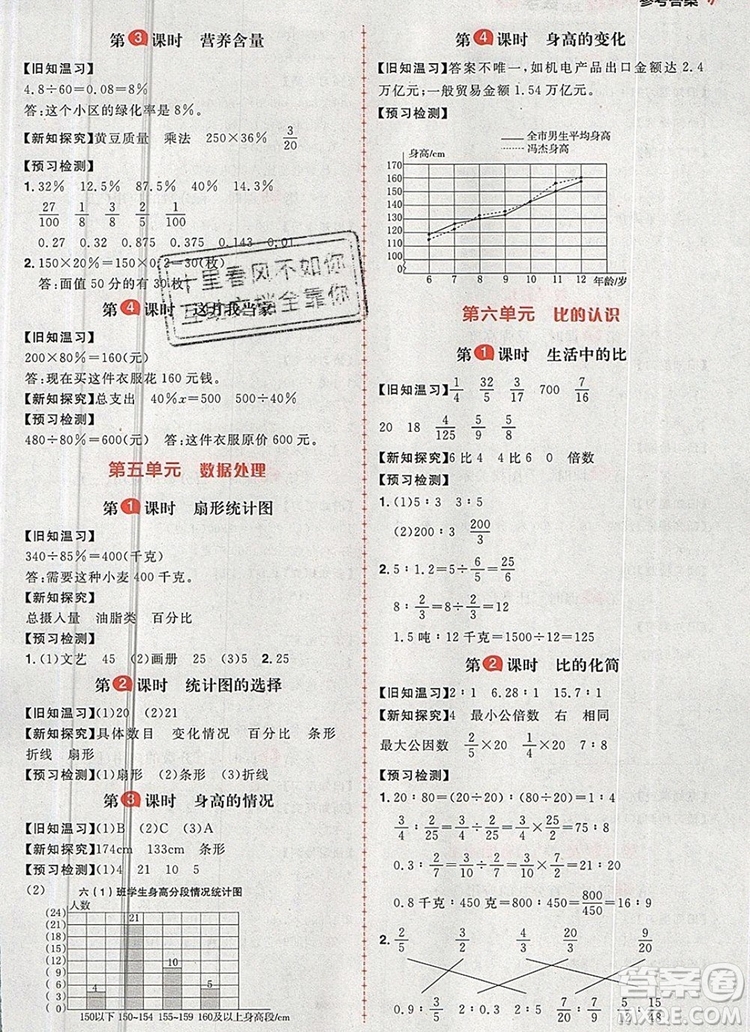 参考答案
第3课时 营养含量
【旧知温习】
4.8÷60=0.08=8%
答:这个小区的绿化率是8%。
【新知探究】黄豆质量 乘法 250×36% 3/20
【预习检测】
1.32% 12.5% 87.5% 40% 44%
27/100 1/4
0.27 0.32 0.245 0.143 0.01
2.150×20%=150×0.2=30(枚)
答:面值 的有30枚。
第4课时 这月我当家
【旧知温习】
200×80%=160(元)
答:现在买这件衣服花160元钱。
【新知探究】总支出 40%x=500 500÷40%
【预习检测】
480÷80%=600(元) 答:这件衣服原价600元。
第五单元 数据处理
第1课时 扇形统计图
【旧知温习】
340÷85%=400(千克)
答:需要这种小麦400千克。
【新知探究】
总摄入量 油脂类 百分比
【预习检测】
1.(1)文艺 45 (2)画册 25 2.25
第2课时 统计图的选择
【旧知温习】(1)20 (2)21
【新知探究】具体数目 变化情况 百分比 条形
折线 扇形
【预习检测】(1)扇形 (2)条形 (3)折线
第3课时 身高的情况
【旧知温习】(1)B (2)C (3)A
【新知探究】174cm 133cm 条形
【预习检测】(1)4 21 10 5
(2) 六(1)班学生身高分段情况统计图
人数
(24)
(21)
(18)
(15)
(12)
(9)
(6)
(3)
0
4 21 10 5
150以下 150~154 155~159 160及以上 身高/cm
第4课时 身高的变化
【旧知温习】答案不唯一,如机电产品出口金额达2.4
万亿元;一般贸易金额1.54万亿元。
【预习检测】
全市男生平均身高
冯杰身高
身高/cm
170
160
150
140
130
120
110
100
0 6 7 8 9 10 11 12 年龄/岁
第六单元 比的认识
第1课时 生活中的比
【旧知温习】1/4 32/5 3/16 700 7/16
20 18 4/125 9/10 8/9
【新知探究】6比4 6∶4 6 0 倍数
【预习检测】
1.(1)5∶3 3∶5
(2)200∶3 200/3
2.5∶1.2=5÷6/5=5×5/6=25/6
8∶2/3=8÷2/3=8×3/2=12
1.5吨∶12千克=1500÷12=125
第2课时 比的化简
【旧知温习】2∶1 6.28∶1 15.7∶1
【新知探究】4 最小公倍数 右 相同
最大公因数 2/5 2/5 2/5 7∶8
【预习检测】
1.20∶80=(20÷20)∶(80÷20)=1∶4
3/4∶2/25=3/4÷2/25=3/4×25/2=75∶8
0.3∶2/15=3/10÷2/15=3/10×15/2=9∶4
0.8千克∶450克=800∶450=800/450=16∶9
2. 2/5 3/5 3/20 6/20 9/20
0.9∶2 2/5 5/16 15/48
十里春风不如你
全靠你
答案圈
MXQE.COM